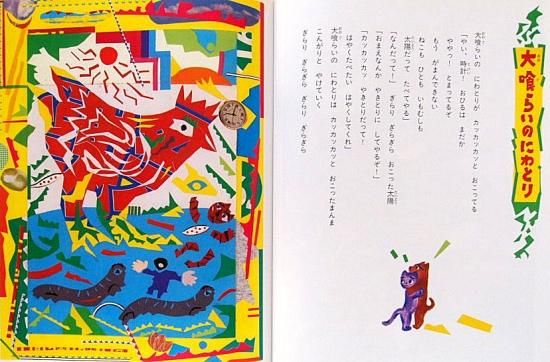 大喰らいのにわとり
大喰らいの にわとりが カッカッカッと おこってる
「やい、時計！ おひるは まだか
ややっ！ とまってるぞ
もう がまんできない
ねこも ひとも いもむしも
太陽だって たべてやる」
「なんだって！」 ぎらり ぎらぎら おこった太陽
「おまえなんか やきとりに してやるぞ！」
「カッカッカッ やきとりだって！
はやくたべたい はやくしてくれ」
大喰らいの にわとりは カッカッカッと おこったまんま
こんがりと やけていく
ぎらり ぎらぎら ぎらり ぎらぎら